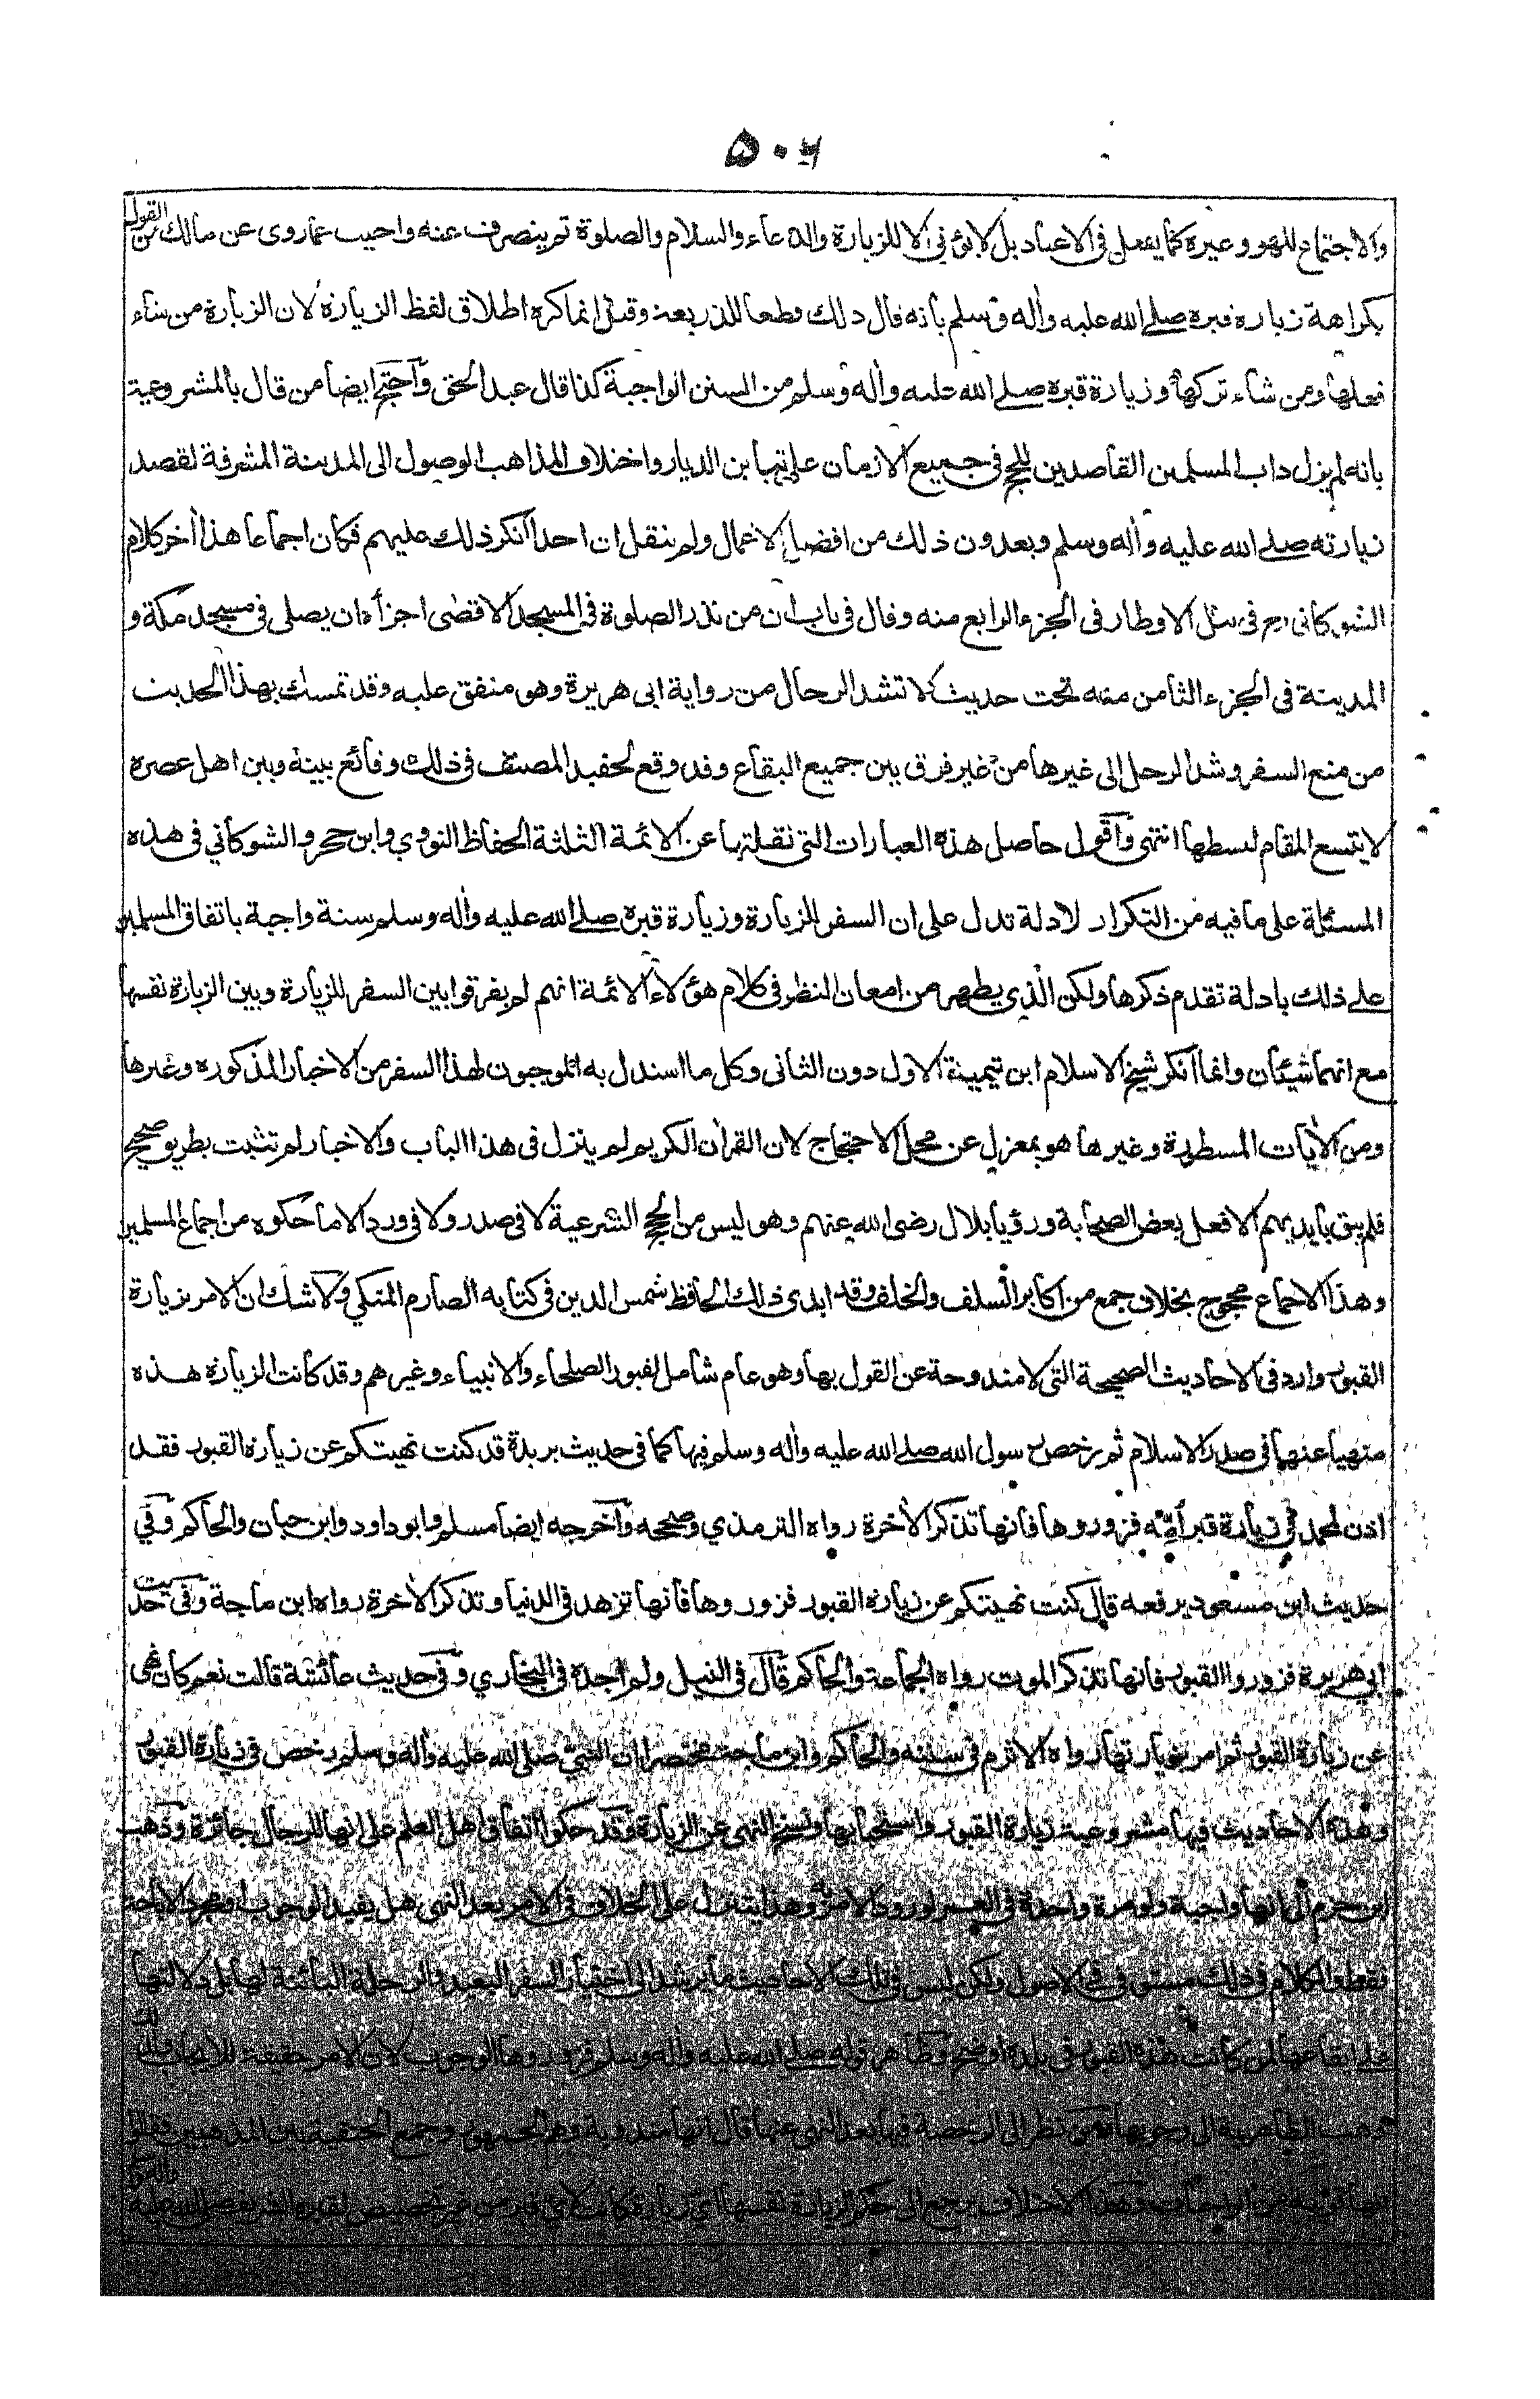 ٥٠٦
والاجتماع للهو وغيره كما يفعل فى الاعياد بل لا يؤتى الا للزيارة والدعاء والسلام والصلوة ثم ينصرف عنه واجيب عما روى عن مالك من القول
بكراهة زيارة قبره صلى الله عليه وأله وسلم بأنه قال ذلك قطعا للذريعة وقيل انما كره اطلاق لفظ الزيارة لان الزيارة من شاء
فعلها ومن شاء تركها وزيارة قبره صلى الله عليه وأله وسلم من السنن الواجبة كذا قال عبد الحق واحتج ايضا من قال بالمشروعية
بانه لم يزل داب المسلمين القاصدين للحج فى جميع الازمان على تباين الديار واختلاف المذاهب الوصول الى المدينة المشرفة لقصد
زيارته صلى الله عليه وأله وسلم ويعدون ذلك من افضل الاعمال ولم ينقل ان احدا انكر ذلك عليهم فكان اجماعا هذا أخر كلام
الشوكانى رح فى نيل الاوطار فى الجزء الرابع منه وقال فى باب ان من نذر الصلوة فى المسجد الاقصى اجزأه ان يصلى فى مسجد مكة و
المدينة فى الجزء الثامن منه تحت حديث لا تشد الرحال من رواية ابى هريرة وهو متفق عليه وقد تمسك بهذا الحديث
من منع السفر وشد الرحل الى غيرها من غير فرق بين جميع البقاع وقد وقع لحفيد المصنف فى ذلك وقائع بينه وبين اهل عصره
لا يتسع المقام لبسطها انتهى واقول حاصل هذه العبارات التى نقلتها عن الائمة الثلثة الحفاظ النووي وابن حجر والشوكاني فى هذه
المسئلة على ما فيه من التكرار لادلة تدل على ان السفر للزيارة وزيارة قبره صلى الله عليه وأله وسلم سنة واجبة باتفاق المسلمين
على ذلك بادلة تقدم ذكرها ولكن الذى يظهر من امعان النظر فى كلام هؤلاء الائمة انهم لم يفرقوا بين السفر للزيارة وبين الزيارة نفسها
مع انهما شيئان وانما انكر شيخ الاسلام ابن تيمية الاول دون الثانى وكل ما استدل به الموجبون لهذا السفر من الاخبار المذكورة وغيرها
ومن الأيات المسطورة وغيرها هو بمعزل عن محل الاحتجاج لان القرأن الكريم لم ينزل فى هذا الباب والاخبار لم تثبت بطريق صحيح
فلم يبق بايديهم الا فعل بعض الصحابة ورؤيا بلال رضى الله عنهم وهو ليس من الحجج الشرعية لا فى صدر ولا فى ورد الا ما حكوه من اجماع المسلمين
وهذا الاجماع محجوج بخلاف جمع من اكابر السلف والخلف وقد ابدى ذلك الحافظ شمس الدين فى كتابه الصارم المنكي ولا شك ان الامر بزيارة
القبور وارد فى الاحاديث الصحيحة التى لا مندوحة عن القول بها وهو عام شامل لقبور الصلحاء والانبياء وغيرهم وقد كانت الزيارة هذه
منهيا عنها فى صدر الاسلام ثم رخص رسول الله صلى الله عليه وأله وسلم فيها كما فى حديث بريدة قد كنت نهيتكم عن زيارة القبور فقد
اذن لمحمد فى زيارة قبر أمه فزوروها فانها تذكر الأخرة رواه الترمذي وصححه واخرجه ايضا مسلم وابو داود وابن حبان والحاكم وفي
حديث ابن مسعود يرفعه قال كنت نهيتكم عن زيارة القبور فزوروها فانها تزهد فى الدنيا وتذكر الأخرة رواه ابن ماجة وفى حديث
ابي هريرة فزوروا القبور فانها تذكر الموت رواه الجماعة والحاكم قال فى النيل ولم اجده فى البخاري وفى حديث عائشة قالت نعم كان نهى
عن زيارة القبور ثم امر بزيارتها رواه الاثرم فى سننه والحاكم وابن ماجة مختصرا ان النبي صلى الله عليه وأله وسلم رخص فى زيارة القبور
وهذه الاحاديث فيها مشروعية زيارة القبور واستحبابها ونسخ النهى عن الزيارة وقد حكوا اتفاق اهل العلم على انها للرجال جائزة وذهب
ابن حزم الى انها واجبة ولو مرة واحدة فى العمر لورود الامر به وهذا يتنزل على الخلاف فى الامر بعد النهى هل يفيد الوجوب او مجرد الاباحة
فقط والكلام فى ذلك مستوفى فى الاصول ولكن ليس فى تلك الاحاديث ما يرشد الى اختيار السفر البعيد والرحلة
على ايقاعها لمن كانت هذه القبور فى بلده وظاهر قوله صلى الله عليه وأله وسلم فزوروها الوجوب لان الامر حقيقة للايجاب ولذلك
ذهب الظاهرية الى وجوبها ومن نظر الى الرخصة فيها بعد النهى عنها قال انها مندوبة وهم الجمهور وجمع
وهذا الاختلاف يرجع الى حكم الزيارة نفسها اي زيارة كانت لاي قبر من غير تخصيص لقبره الشريف صلى الله عليه وأله وسلم